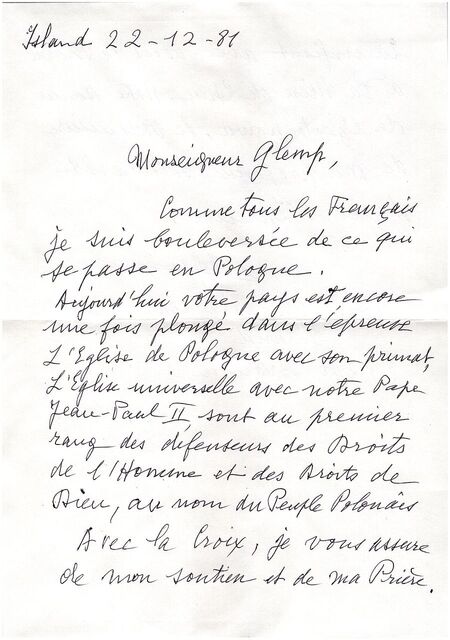 Island 22-12-81
Monseigneur Glemp,
Comme tous les Français
je suis bouleversée de ce qui
se passe en Pologne.
Aujourd'hui votre pays est encore
une fois plongé dans l'épreuve
L'Eglise de Pologne avec son primat,
L'Eglise universelle avec notre Pape
Jean-Paul II, sont au premier
rang des défenseurs des Droits
de l'Homme et des Droits de
Dieu, au nom du Peuple Polonais
Avec la Croix, je vous assure
de mon soutien et de ma Prière.